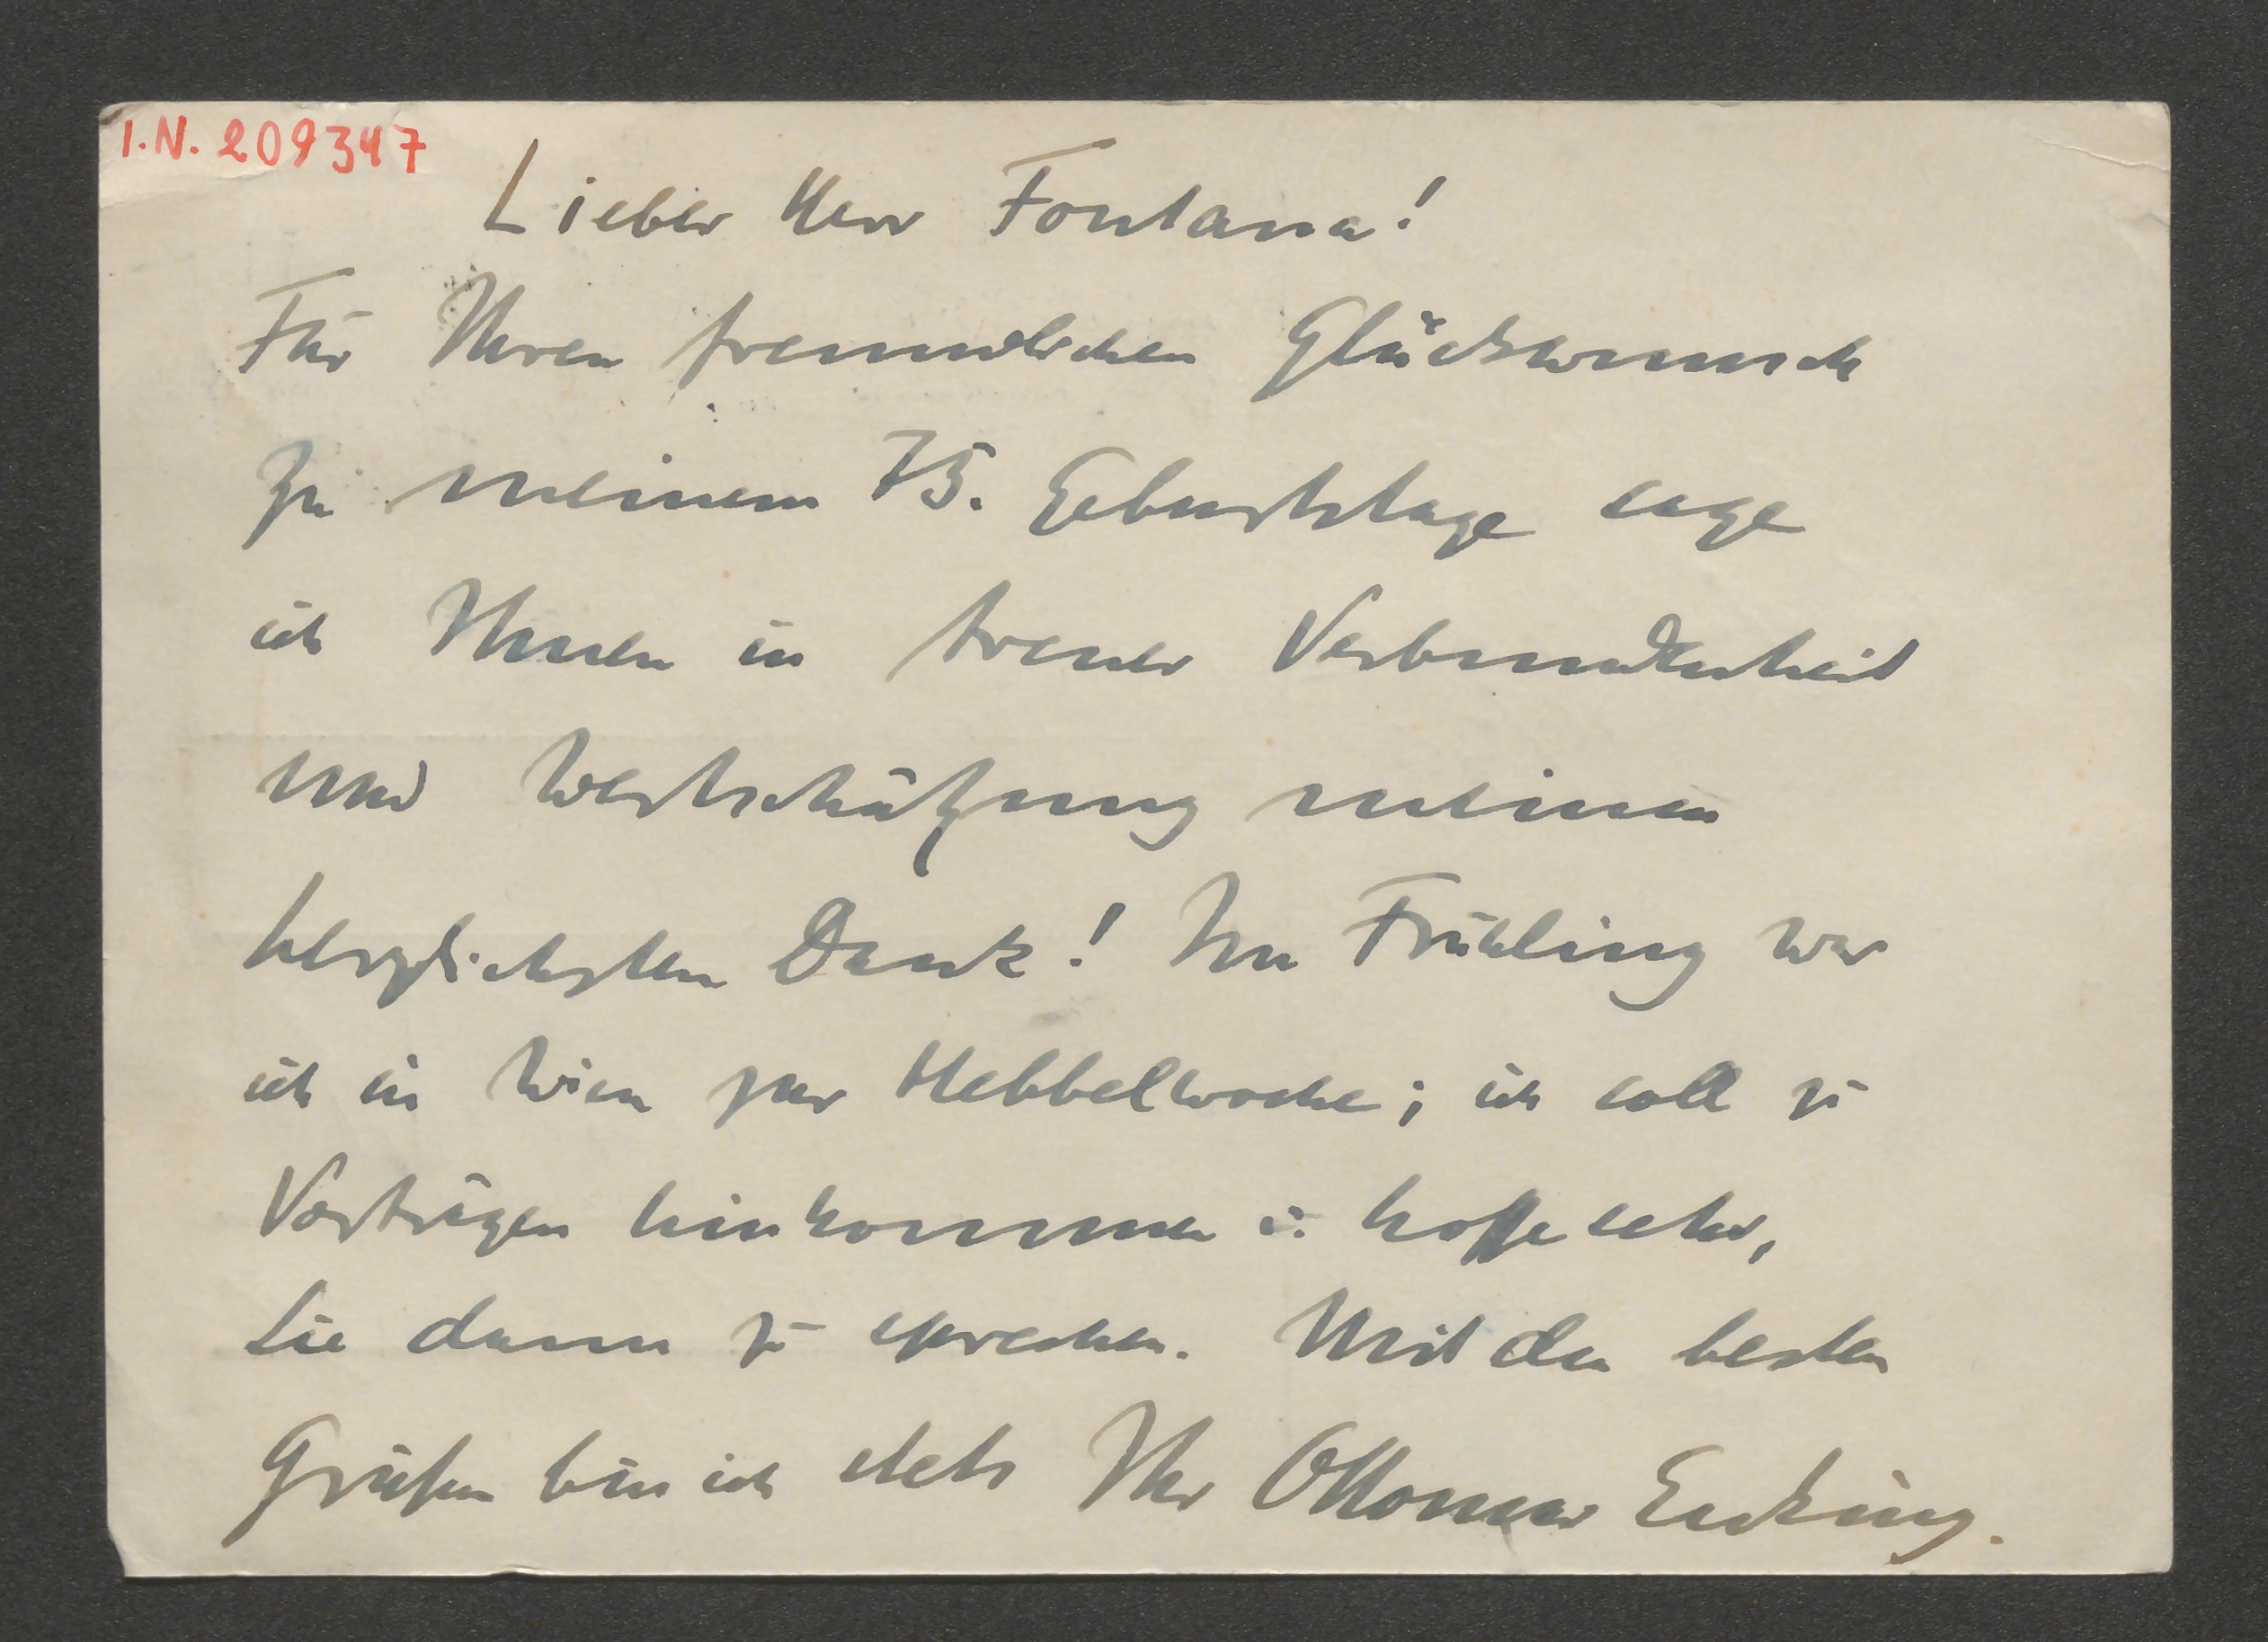 I.N. 209347
Lieber Herr Fontana!
Für Ihren freundlichen Glückwunsch
zu meinem 75. Geburtstage sage
ich Ihnen in treuer Verbundenheit
und Wertschätzung meinen
herzlichsten Dank! Im Frühling war
ich in Wien zur Hebbelwoche; ich soll zu
Vorträgen hinkommen u. hoffe sehr,
Sie dann zu sprechen. Mit den besten
Grüßen bin ich stets Ihr Ottomar Enking.